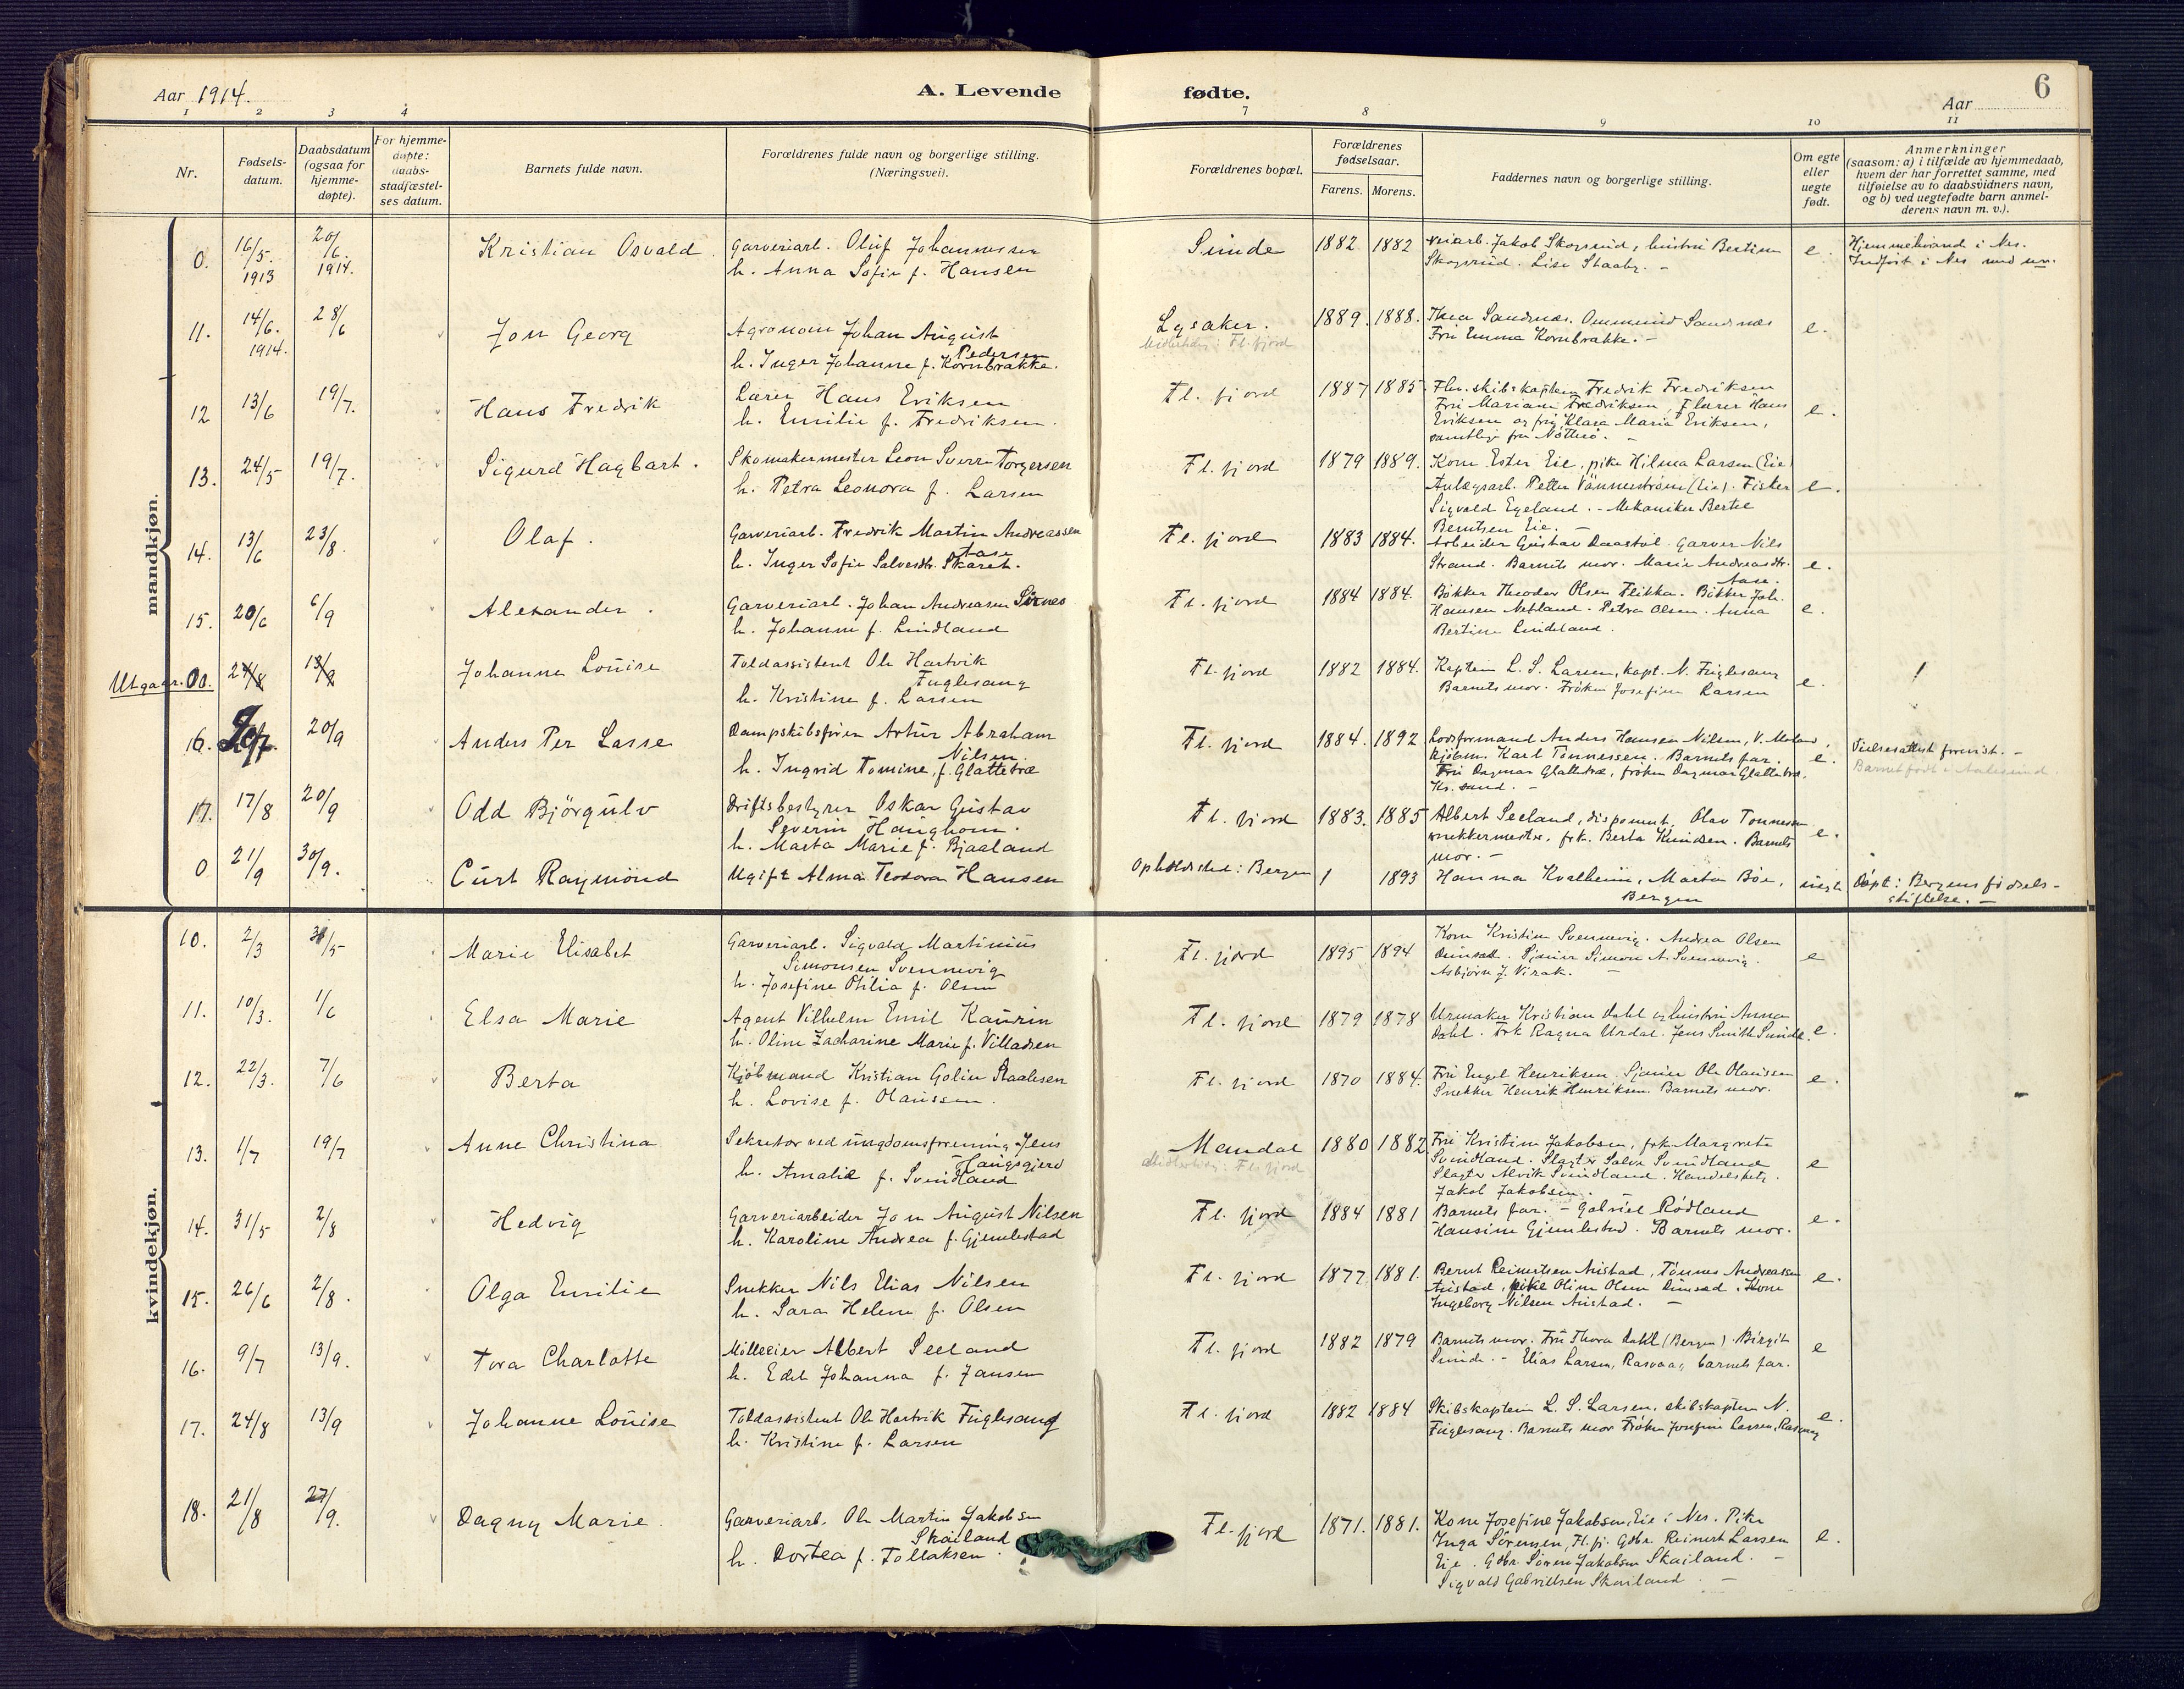 Aar 1914.
A. Levende
fødte.
Aar
6
1 2 3 4
7 8 9 10 11
Nr.
Fødsels-
datum.
Daabsdatum
(ogsaa for
hjemme-
døpte).
For hjemme-
døpte:
daabs-
stadfæstel-
ses datum.
Barnets fulde navn.
Forældrenes fulde navn og borgerlige stilling.
(Næringsvei).
Forældrenes bopæl.
Forældrenes
fødselsaar.
Farens. Morens.
Faddernes navn og borgerlige stilling.
Om egte
eller
uegte
født.
Anmerkninger
(saasom: a) i tilfælde av hjemmedaab,
hvem der har forrettet samme, med
tilføielse av to daabsvidners navn,
og b) ved uegtefødte barn anmel-
derens navn m. v.).
mandkjøn.
0. 16/5. 1913 20/6. 1914. Kristian Osvald
Garveriarb. Oluf Johannessen
h. Anna Sofie f. Hansen
Sunde 1882 1882
Veiarb. Jakob Skogsrud, hustru Bertine
Skogsrud. Lise Staaby. -
e.
Hjemmehørende i Nes.
Indført i Nes med nr.
11. 14/6. 1914. 28/6 Jon Georg
Agronom Johan August
Pedersen
h. Inger Johanne f. Kornbrække.
Lysaker.
Midlertidig: Fl. fjord
1889. 1888.
Thea Sandnæs. Ommund Sandnæs
Fru Emma Kornbrække. -
e.
12 13/6 19/7. Hans Fredrik
Lærer Hans Eriksen
h. Emilie f. Fredriksen.
Fl. fjord 1887 1885
Fhv. skibskaptein Fredrik Fredriksen
Fru Mariane Fredriksen, f. lærer Hans
Eriksen og frøk. Klara Marie Eriksen,
samtlige fra Nøtterø. -
e.
13. 24/5 19/7. Sigurd Hagbart.
Skomakermester Leon Sverre Torgersen
h. Petra Leonora f. Larsen
Fl. fjord 1879 1889.
Kone Ester Eie, pike Hilma Larsen (Eie)
Anlægsarb. Petter Vännerström (Eie). Fisker
Sigvald Egeland. - Mekaniker Bertel
Berntsen Eie. -
e.
14. 13/6 23/8. Olaf.
Garveriarb. Fredrik Martin Andreassen
Aase
h. Inger Sofie Salvesdtr. Skaret.
Fl. fjord 1883 1884.
Arbeider Gustav Daastøl. Garver Nils
Strand. Barnets mor. Marie Andreasdtr.
Aase.
e.
15. 20/6 6/9 Alexander.
Garveriarb. Johan Andreasen Sirnes
h. Johanne f. Lindland
Fl. fjord 1884 1884.
Bøkker Theodor Olsen Flikka. Bøkker Joh.
Hansen Netland. Petra Olsen. Anna
Bertine Lindeland.
e.
Utgaar. 00. 24/8 13/9 Johanne Louise
Toldassistent Ole Hartvik
Fuglesang
h. Kristine f. Larsen
Fl. fjord 1882 1884.
Kaptein L. S. Larsen, kapt. N. Fuglesang
Barnets mor. Frøken Josefine Larsen
e.
16. 20/9 Anders Per Lasse
Dampskibsfører Artur Abraham
Nilsen
h. Ingrid Tomine, f. Glattetræ
Fl. fjord 1884. 1892
Lodsformand Anders Hansen Nilsen, V. Moland,
kjøbm. Karl Tønnessen. Barnets far.
Fru Dagmar Glattetræ, frøken Dagmar Glattetræ.
Kr. sand. -
e.
Vielsesattest forevist. -
Barnet født i Aalesund.
17. 17/8 20/9 Odd Bjørgulv
Driftsbestyrer Oskar Gustav
Severin Haughom.
h. Marta Marie f. Bjaaland
Fl. fjord 1883. 1885
Albert Seeland, disponent, Olav Tønnessen
snekkermester, frk. Berta Knudsen. Barnets
mor. -
e.
0 21/9 30/9. Curt Raymond
Ugift Alma Teodora Hansen
Opholdssted: Bergen 1893
Hanna Kvalheim, Marta Bøe,
Bergen
uegte
Døpt: Bergens fødsels-
stiftelse. -
kvindekjøn.
10. 2/3 31/5 Marie Elisabet
Garveriarb. Sigvald Martinius
Simonsen Svennevig
h. Josefine Otilia f. Olsen
Fl. fjord 1895 1894
Kone Kristine Svennevig. Andrea Olsen
Dunsæd. Sjømer Simon A. Svennevig.
Asbjørn J. Virak. -
e
11. 10/3. 1/6 Elsa Marie
Agent Vilhelm Emil Kaurin
h. Oline Zacharine Marie f. Villadsen
Fl. fjord 1879 1878
Urmaker Kristian Dahl og hustru Anna
Dahl. Frk Ragna Urdal. Jens Smith Sunde.
e.
12. 22/3. 7/6 Berta
Kjøbmand Kristian Golin Staalesen
h. Lovise f. Olaussen.
Fl. fjord 1870 1884.
Fru Engel Henriksen. Sjømer Ole Olaussen
Snekker Henrik Henriksen. Barnets mor.
e.
13. 1/7 19/7 Anne Christina
Sekretær ved ungdomsforening Jens
Haugsgjerd
h. Amalie f. Svindland
Mandal
Midlertidig: Fl. fjord
1880 1882
Fru Kristine Jakobsen, frk. Margrete
Svindland. Slagter Salve Svindland
Slagter Alvik Svindland. Handelsbetj.
Jakob Jakobsen. -
e
14. 31/5 2/8 Hedvig
Garveriarbeider Jon August Nilsen
h. Karoline Andrea f. Gjemlestad
Fl. fjord 1884 1881
Barnets far. - Gabriel Rødland
Hansine Gjemlestad. Barnets mor.
e.
15. 26/6 2/8. Olga Emilie
Snekker Nils Elias Nilsen
h. Sara Helene f. Olsen
Fl. fjord 1877 1881.
Bernt Reinertsen Austad, Tønnes Andreassen
Austad, pike Oline Olsen Dunsæd. Kone
Ingeborg Nilsen Austad. -
e.
16. 9/7 13/9. Tora Charlotte
Mølleeier Albert Seeland
h. Edel Johanna f. Jansen
Fl. fjord 1882 1879
Barnets mor. Fru Thora Dahl (Bergen). Birgit
Sunde. - Elias Larsen, Rasvaag, barnets far.
e
17. 24/8 13/9 Johanne Louise
Toldassistent Ole Hartvik Fuglesang
h. Kristine f. Larsen
Fl. fjord 1882 1884
Skibskaptein L. S. Larsen, skibskaptein N.
Fuglesang. Barnets mor Frøken Josefine Larsen, Rasvaag
e.
18. 21/8 27/9. Dagny Marie.
Garveriarb. Ole Martin Jakobsen
Skailand
h. Dortea f. Tollaksen.
Fl. fjord 1871. 1881.
Kone Josefine Jakobsen, Eie i Nes. Pike
Inga Sørensen, Fl. fj. Gdbr. Reinert Larsen
Eie. Gdbr. Søren Jakobsen Skailand. -
Sigvald Gabrielsen Skailand. -
e.